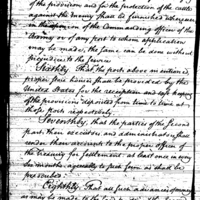 of the provision and for the protection of the cattle
against the enemy shall be furnished whenever
in the opinion of the Commanding officer of the
Army or of any post to whom application
may be made, the same can be done without
prejudice to the service
Sixthly, that at the posts above mentioned
proper store houses shall be provided by the
United States for the reception and safe keeping
of the provisions deposited from time to time at
those posts respectively.
Seventhly, that the parties of the second
part, their executors and administrators shall
render their accounts to the proper officer of
the treasury for settlement at least once in every
six months agreeably to such form as shall be
prescribed.
Eighthly, That all such advances of money
as may be made to the